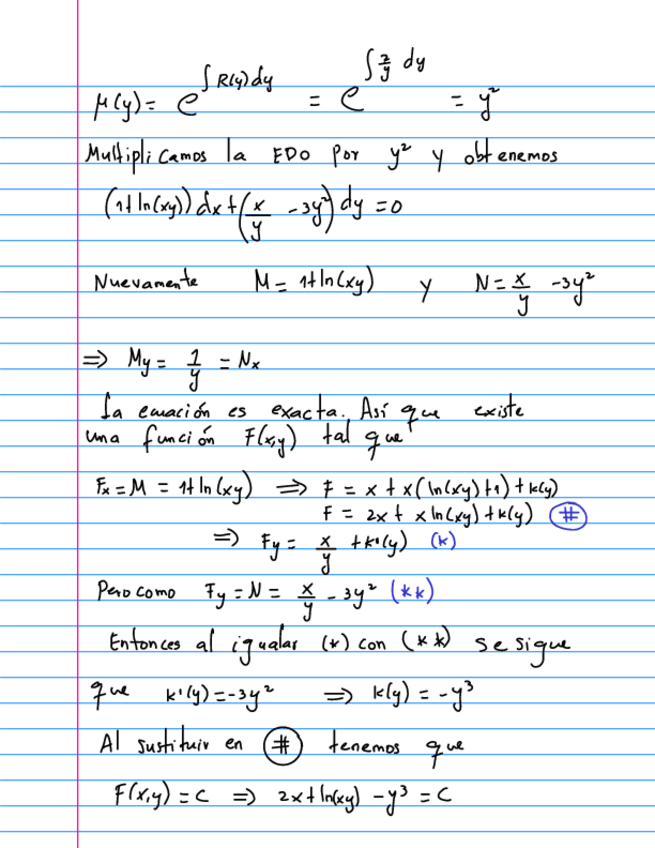 μ(y) = e^{∫R(y)dy} = e^{∫ 2/y dy} = y²
Multiplicamos la EDO por y² y obtenemos
(1+ln(xy))dx + (x/y - 3y²)dy = 0
Nuevamente M = 1+ln(xy) y N = x/y - 3y²
⇒ My = 1/y = Nx
La ecuación es exacta. Así que existe
una función F(x,y) tal que
Fx = M = 1+ln(xy) ⇒ F = x + x(ln(xy)+1) + k(y)
F = 2x + x ln(xy) + k(y) (#)
⇒ Fy = x/y + k'(y) (*)
Pero como Fy = N = x/y - 3y² (**)
Entonces al igualar (*) con (**) se sigue
que k'(y) = -3y² ⇒ k(y) = -y³
Al sustituir en (#) tenemos que
F(x,y) = C ⇒ 2x + ln(xy) - y³ = C